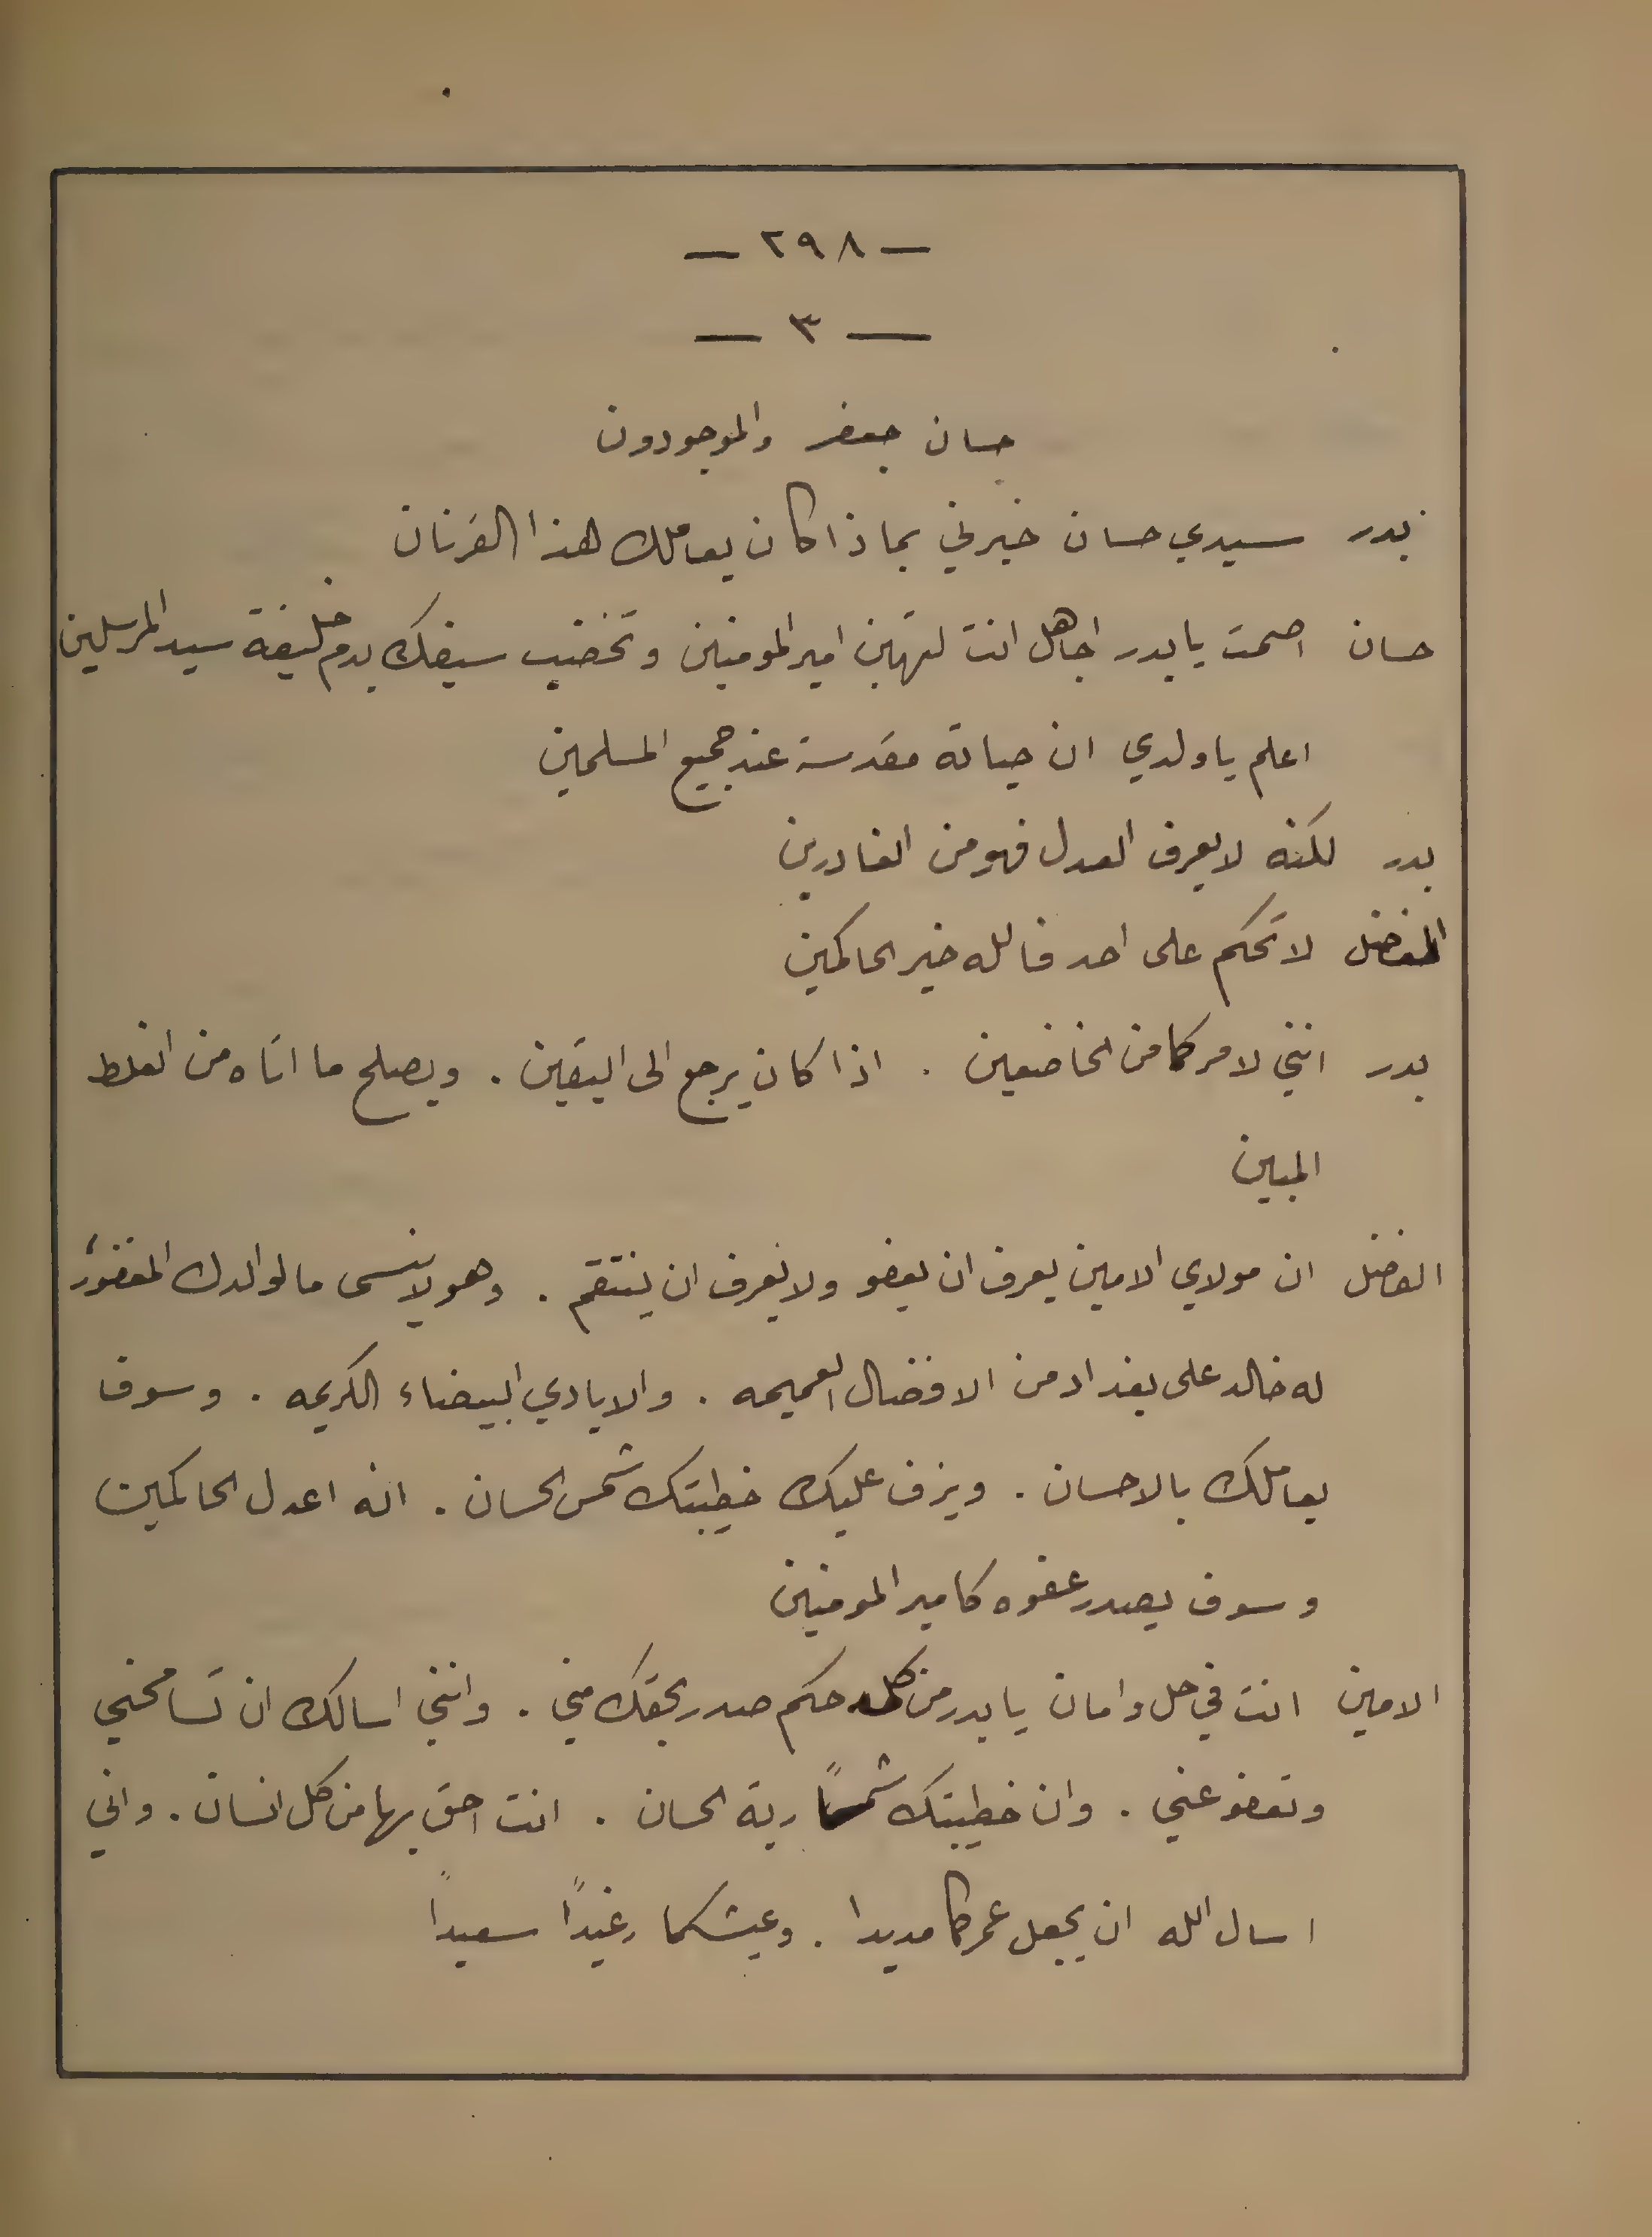 — ٢٩٨ —
— ٣ —
حسان جعفر والموجودون
بدر سيدي حسان خبرني بماذا كان يعاملك هذا القرنان
حسان اصمت يا بدر اجاهل انت لتهين امير المومنين وتخضب سيفك بدم خليفة سيد المرسلين
اعلم يا ولدي ان حياته مقدسة عند جميع المسلمين
بدر لكنه لا يعرف العدل فهو من الغادرين
الفضل لا تحكم على احد فالله خير الحاكمين
بدر انني لامركما من الخاضعين . اذا كان يرجع الى اليقين . ويصلح ما اتاه من الغلط
المبين
الفضل ان مولاي الامين يعرف ان يعفو ولا يعرف ان ينتقم . وهو لا ينسى ما لوالدك المغفور
له خالد على بغداد من الافضال العميمه . والايادي البيضاء الكريمه . وسوف
يعاملك بالاحسان . ويزف عليك خطيبتك شمس الحسان . انه اعدل الحاكمين
وسوف يصدر عفوه كامير المومنين
الامين انت في حل وامان يا بدر من كل حكم صدر بحقك مني . وانني اسالك ان تسامحني
وتعفو عني . وان خطيبتك شمسًا ربة الحسان . انت احق بها من كل انسان . واني
اسال الله ان يجعل عمركما مديدا . وعيشكما رغيدًا سعيدًا